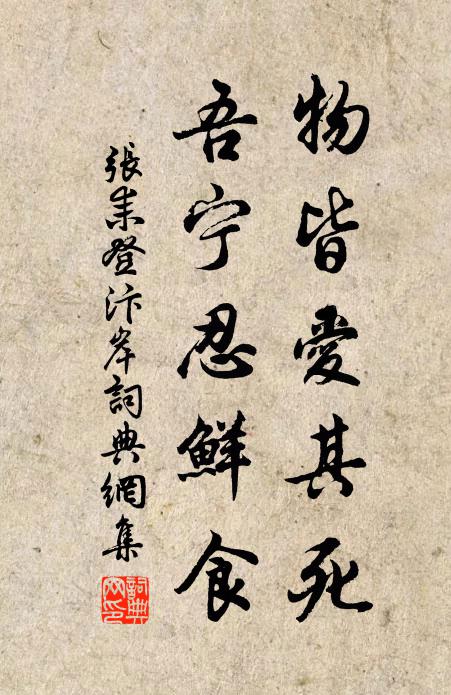 物皆愛其死
吾宁忍鮮食
張耒登汴岸詞典網集
詞典
网印